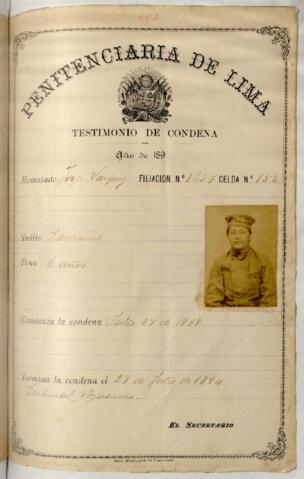 292
PENITENCIARIA DE LIMA
TESTIMONIO DE CONDENA
DE
Año de 189
Rematado José Vasquez FILIACION N.º 1257 CELDA N.º 152
Delito Homicidio
Pena 6 años
Comienza la condena Julio 27 de 1888
Termina la condena el 27 de Julio de 1894
Tribunal Ayacucho.
EL SECRETARIO